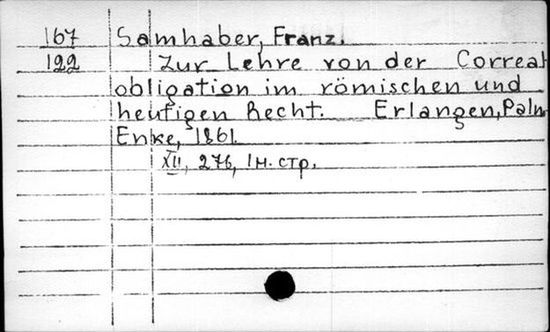 167 Samhaber, Franz.
122 Zur Lehre von der Correal
obligation im römischen und
heutigen Recht. Erlangen, Palm
Enke, 1861.
XII, 276, 1 н. стр.